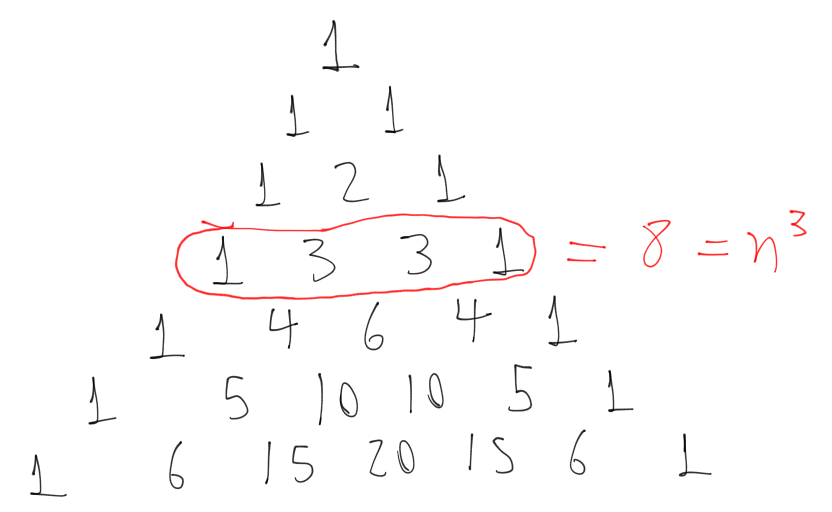 1
1 1
1 2 1
1 3 3 1 = 8 = n³
1 4 6 4 1
1 5 10 10 5 1
1 6 15 20 15 6 1